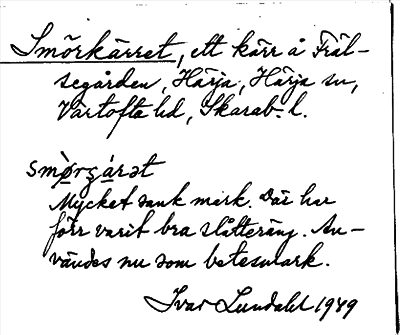 Smörkärret, ett kärr å Fräl-
segården, Härja, Härja sn,
Vartofta hd, Skarab. l.
smö̀rçárət
Mycket sank mark. Där har
förr varit bra slåtteräng. An-
vändes nu som betesmark.
Ivar Lundahl 1949